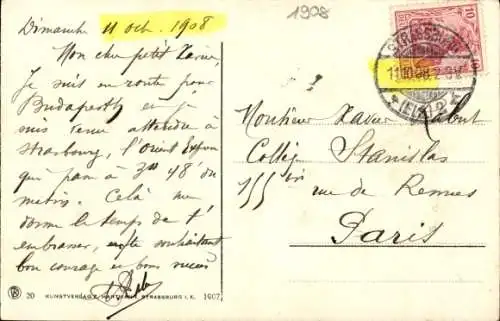 1908
Dimanche 11 oct. 1908
Mon cher petit Xavier,
Je suis en route pour
Budapesth et je
suis venu attendre à
Strasbourg, l'orient Express
qui passe à 3H 48 du
matin. Celà me
donne le temps de t'
embrasser, en te souhaitant
bon courage et bon succès
STRASSBURG
11.10.08.
(ELS.)
10
Monsieur Xavier
Collège Stanislas
rue de Rennes
Paris
20 KUNSTVERLAG STRASSBURG I. E. 1907